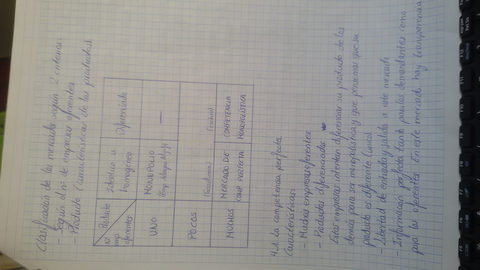 Clasificación de los mercados según 2 criterios:
- Según el nº de empresas oferentes
- Producto (características de los productos)
Producto
nº emp oferentes
Idéntico u homogéneo
Diferenciado
UNO
MONOPOLIO
—
POCOS
MUCHOS
MERCADO DE COMP. PERFECTA
COMPETENCIA MONOPOLÍSTICA
4.1. La competencia perfecta
Características:
- Muchas empresas oferentes
- Producto diferenciado
Estas empresas intentan diferenciar su producto de los demás para ser monopolística y que pensemos que su producto es diferente (único)
- Libertad de entrada y salida a este mercado
- Información perfecta tanto para los demandantes como para los oferentes. En este mercado hay transparencia.